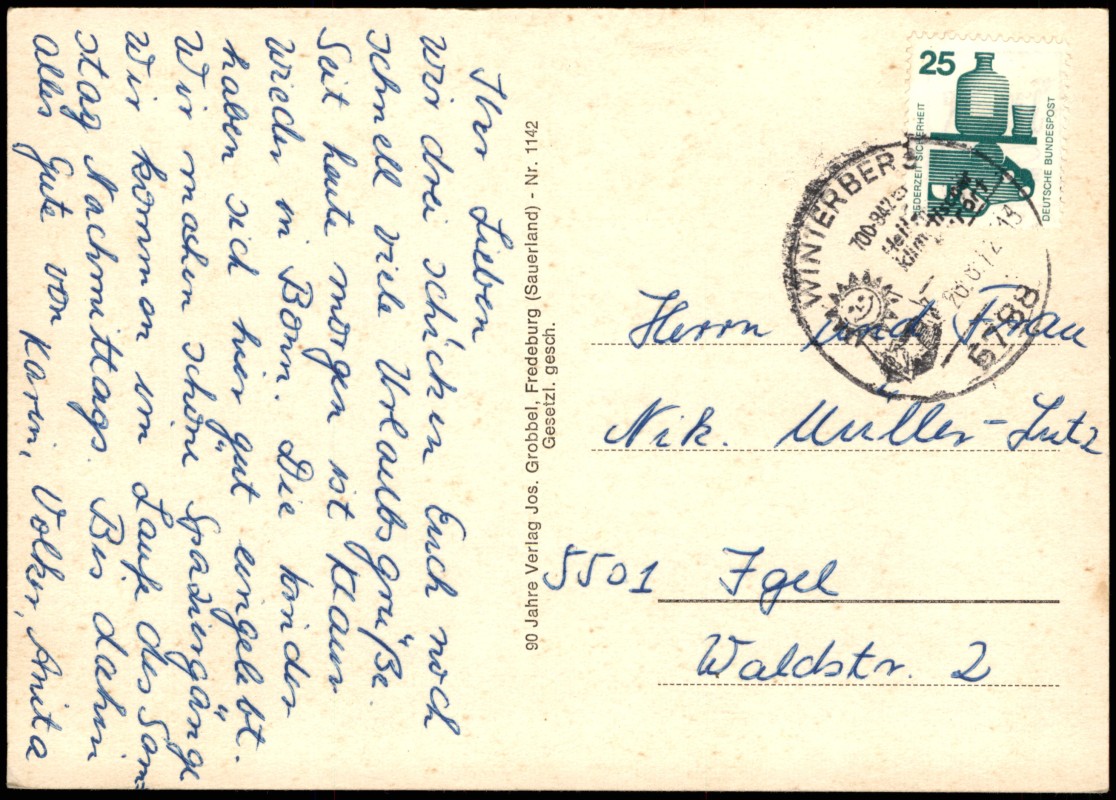 Ihr Lieben
Wir drei schicken Euch noch
schnell viele Urlaubsgrüße.
Seit heute morgen ist Klaus
wieder in Bonn. Die Kinder
haben sich hier gut eingelebt.
Wir machen schöne Spaziergänge
Wir kommen im Laufe des Sam=
stag Nachmittags. Bis dahin
alles Gute von Karin, Volker, Anita
90 Jahre Verlag Jos. Grobbel, Fredeburg (Sauerland) - Nr. 1142
Gesetzl. gesch.
25
JEDERZEIT SICHERHEIT
DEUTSCHE BUNDESPOST
WINTERBERG
700-842
5788
Herrn und Frau
Nik. Müller-Lutz
5501 Igel
Waldstr. 2